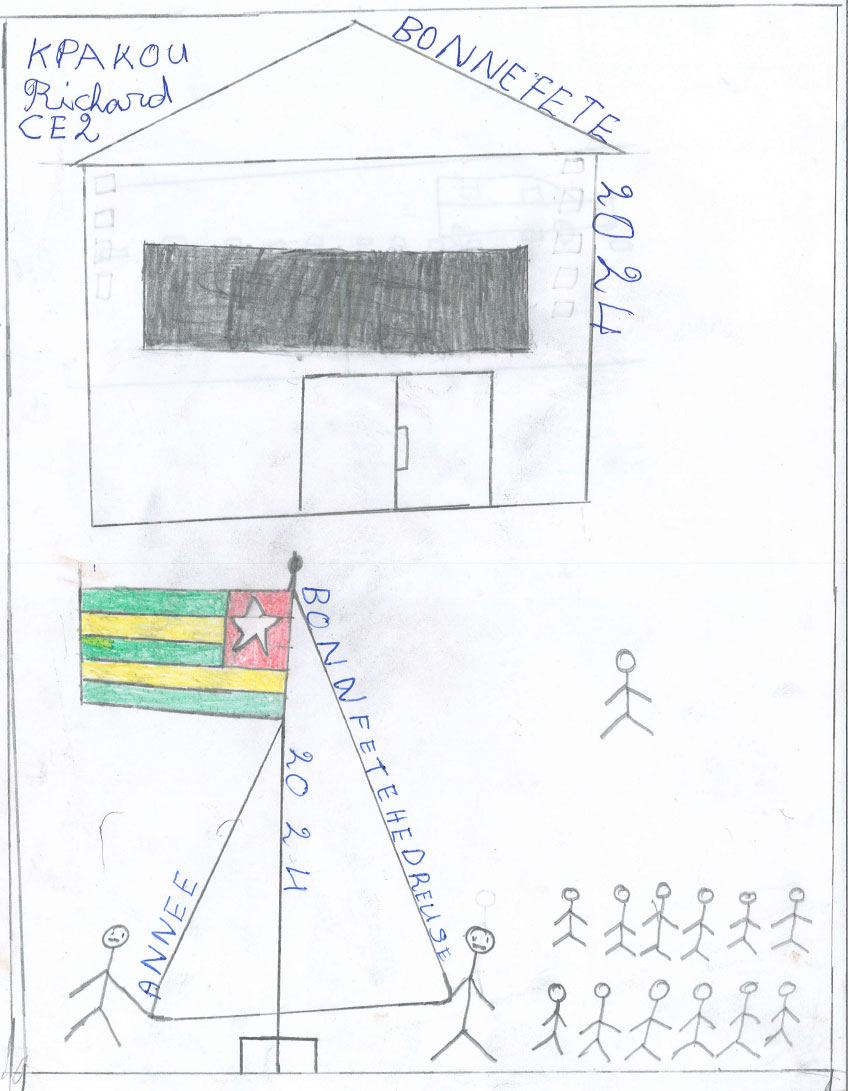 KPAKOU
Richard
CE2
BONNEFETE
2024
BONNNFETEHEDREUSE
2024
ANNEE